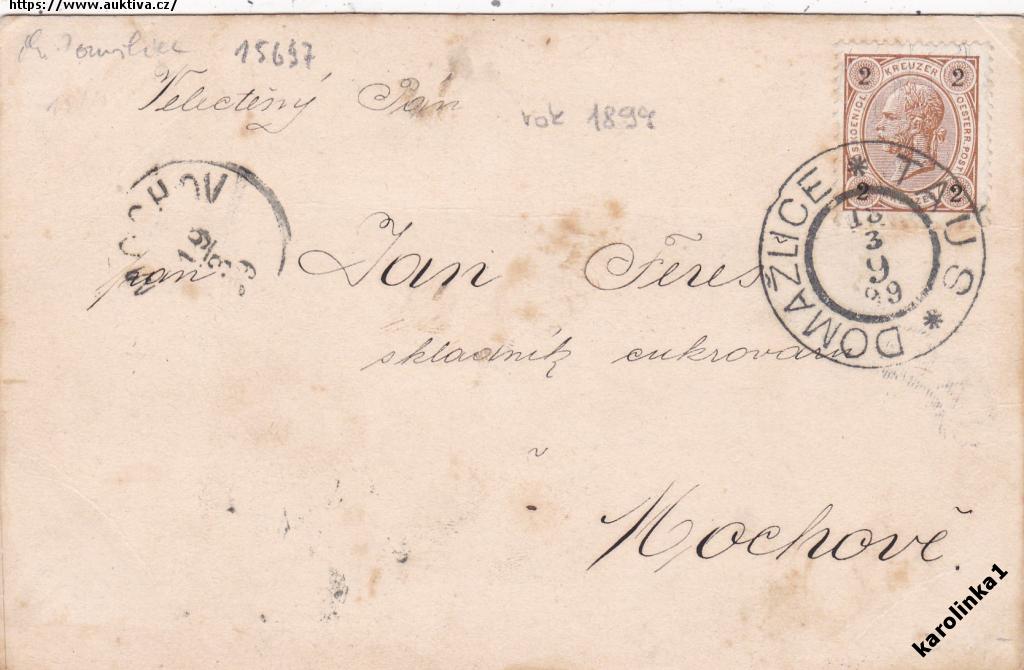 https://www.auktiva.cz/
15697
Velectěný Pán
rok 1899
2 KREUZER 2
OESTERR. POST
2 2
TAUS * DOMAŽLICE *
18
3
9
99
MOCHOV
pan Jan Feres
skladník cukrovaru
v
Mochově.
karolinka1